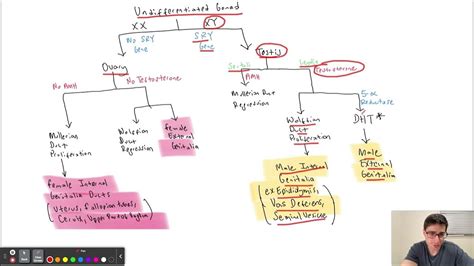 Undifferentiated Gonad
XX
XY
No SRY
Gene
SRY
Gene
Ovary
Testis
No AMH
No Testosterone
Sertoli
AMH
Leydig
Testosterone
Mullerian Duct
Regression
5-α
Reductase
DHT *
Mullerian
Duct
Proliferation
Wolffian
Duct
Regression
Female
External
Genitalia
Wolffian
Duct
Proliferation
Male
External
Genitalia
Female Internal
Genitalia Ducts
(Uterus, fallopian tubes,
Cervix, Upper Part of Vagina)
Male Internal
Genitalia
(ex Epididymis,
Vas Deferens,
Seminal Vesicle)